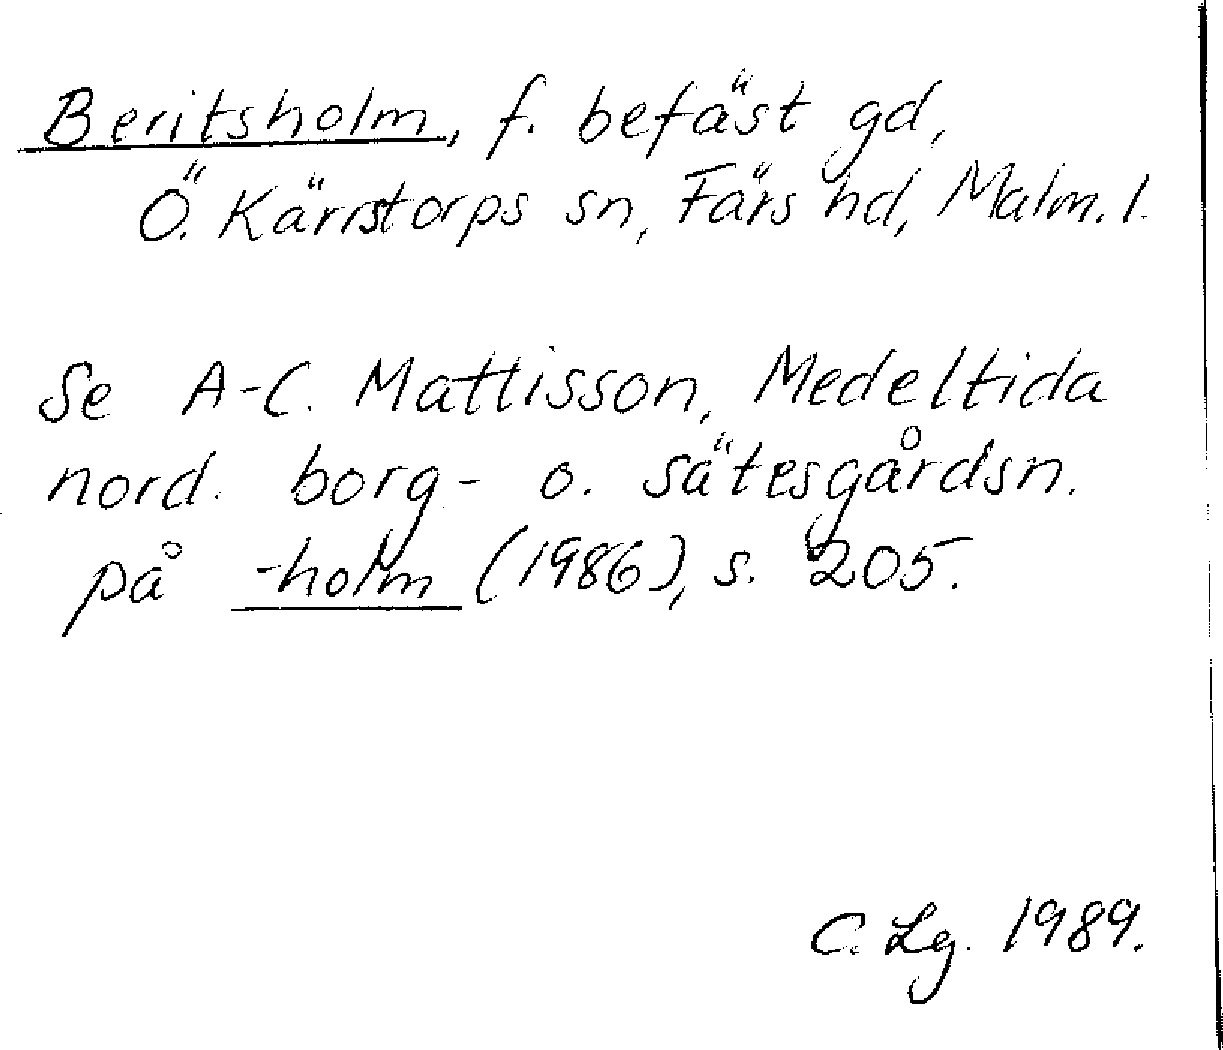 Beritsholm, f. befäst gd,
Ö. Kärrstorps sn, Färs hd, Malm. l.
Se A-C. Mattisson, Medeltida
nord. borg- o. sätesgårdsn.
på -holm (1986), s. 205.
C. Lg. 1989.